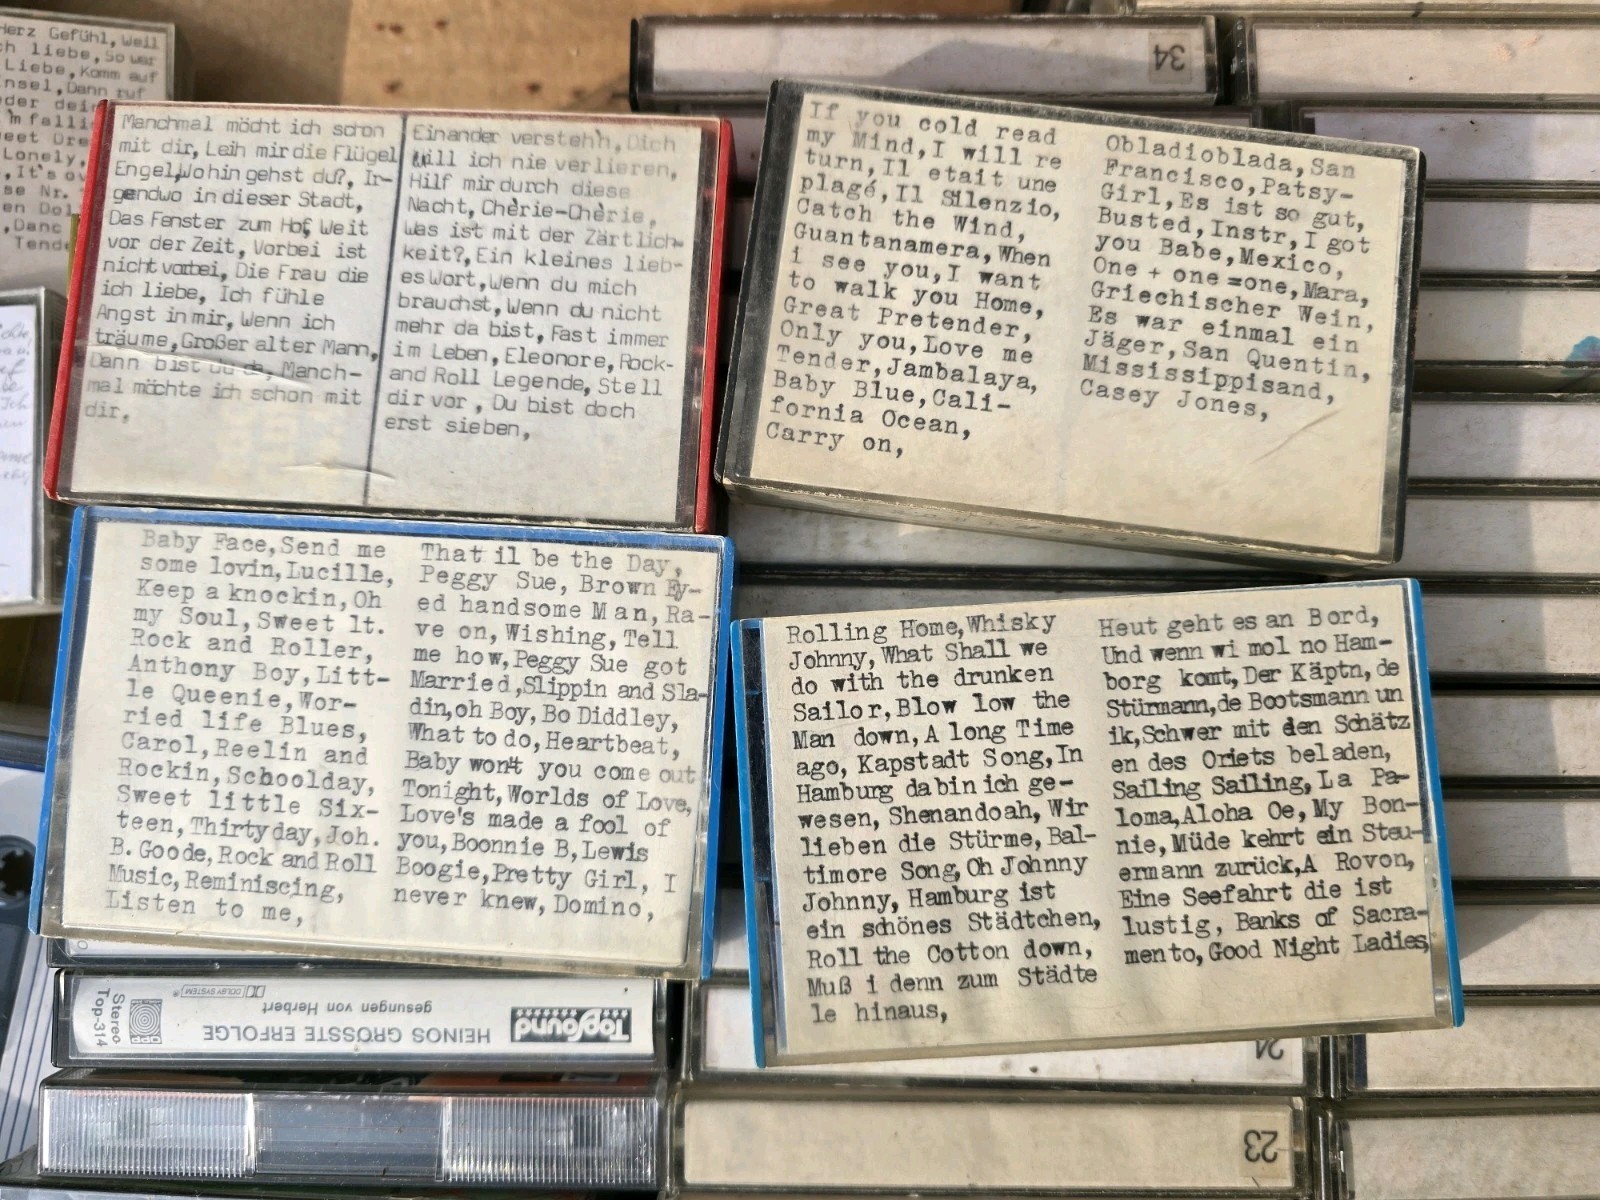 Herz Gefühl, Weil
ch liebe, So war
Liebe, Komm auf
nsel, Dann ruf
der dei
m falli
eet Dre
Lonely,
, It's ov
se Nr.
en Dol
, Danc
Tende
Manchmal möcht ich schon
mit dir, Leih mir die Flügel
Engel, Wohin gehst du?, Ir-
gendwo in dieser Stadt,
Das Fenster zum Hof, Weit
vor der Zeit, Vorbei ist
nicht vorbei, Die Frau die
ich liebe, Ich fühle
Angst in mir, Wenn ich
träume, Großer alter Mann,
Dann bist du da, Manch-
mal möchte ich schon mit
dir,
Einander versteh'n, Dich
will ich nie verlieren,
Hilf mir durch diese
Nacht, Chèrie-Chèrie,
Was ist mit der Zärtlich-
keit?, Ein kleines lieb-
es Wort, Wenn du mich
brauchst, Wenn du nicht
mehr da bist, Fast immer
im Leben, Eleonore, Rock-
and Roll Legende, Stell
dir vor, Du bist doch
erst sieben,
If you cold read
my Mind, I will re
turn, Il etait une
plagé, Il Silenzio,
Catch the Wind,
Guantanamera, When
i see you, I want
to walk you Home,
Great Pretender,
Only you, Love me
Tender, Jambalaya,
Baby Blue, Cali-
fornia Ocean,
Carry on,
Obladioblada, San
Francisco, Patsy-
Girl, Es ist so gut,
Busted, Instr, I got
you Babe, Mexico,
One + one =one, Mara,
Griechischer Wein,
Es war einmal ein
Jäger, San Quentin,
Mississippisand,
Casey Jones,
Baby Face, Send me
some lovin, Lucille,
Keep a knockin, Oh
my Soul, Sweet lt.
Rock and Roller,
Anthony Boy, Litt-
le Queenie, Wor-
ried life Blues,
Carol, Reelin and
Rockin, Schoolday,
Sweet little Six-
teen, Thirty day, Joh.
B. Goode, Rock and Roll
Music, Reminiscing,
Listen to me,
That il be the Day,
Peggy Sue, Brown Ey-
ed handsome Man, Ra-
ve on, Wishing, Tell
me how, Peggy Sue got
Married, Slippin and Sla-
din, oh Boy, Bo Diddley,
What to do, Heartbeat,
Baby won't you come out
Tonight, Worlds of Love,
Love's made a fool of
you, Boonnie B, Lewis
Boogie, Pretty Girl, I
never knew, Domino,
Rolling Home, Whisky
Johnny, What Shall we
do with the drunken
Sailor, Blow low the
Man down, A long Time
ago, Kapstadt Song, In
Hamburg da bin ich ge-
wesen, Shenandoah, Wir
lieben die Stürme, Bal-
timore Song, Oh Johnny
Johnny, Hamburg ist
ein schönes Städtchen,
Roll the Cotton down,
Muß i denn zum Städte
le hinaus,
Heut geht es an Bord,
Und wenn wi mol no Ham-
borg komt, Der Käptn, de
Stürmann, de Bootsmann un
ik, Schwer mit den Schätz
en des Oriets beladen,
Sailing Sailing, La Pa-
loma, Aloha Oe, My Bon-
nie, Müde kehrt ein Steu-
ermann zurück, A Rovon,
Eine Seefahrt die ist
lustig, Banks of Sacra-
mento, Good Night Ladies,
34
TopSound
HEINOS GRÖSSTE ERFOLGE
gesungen von Herbert
DOLBY SYSTEM
Stereo
Top-314
24
23